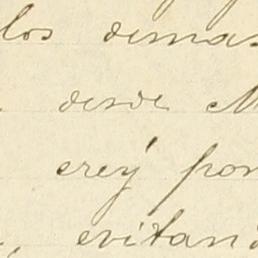 los demas
desde M
erey por
evitand